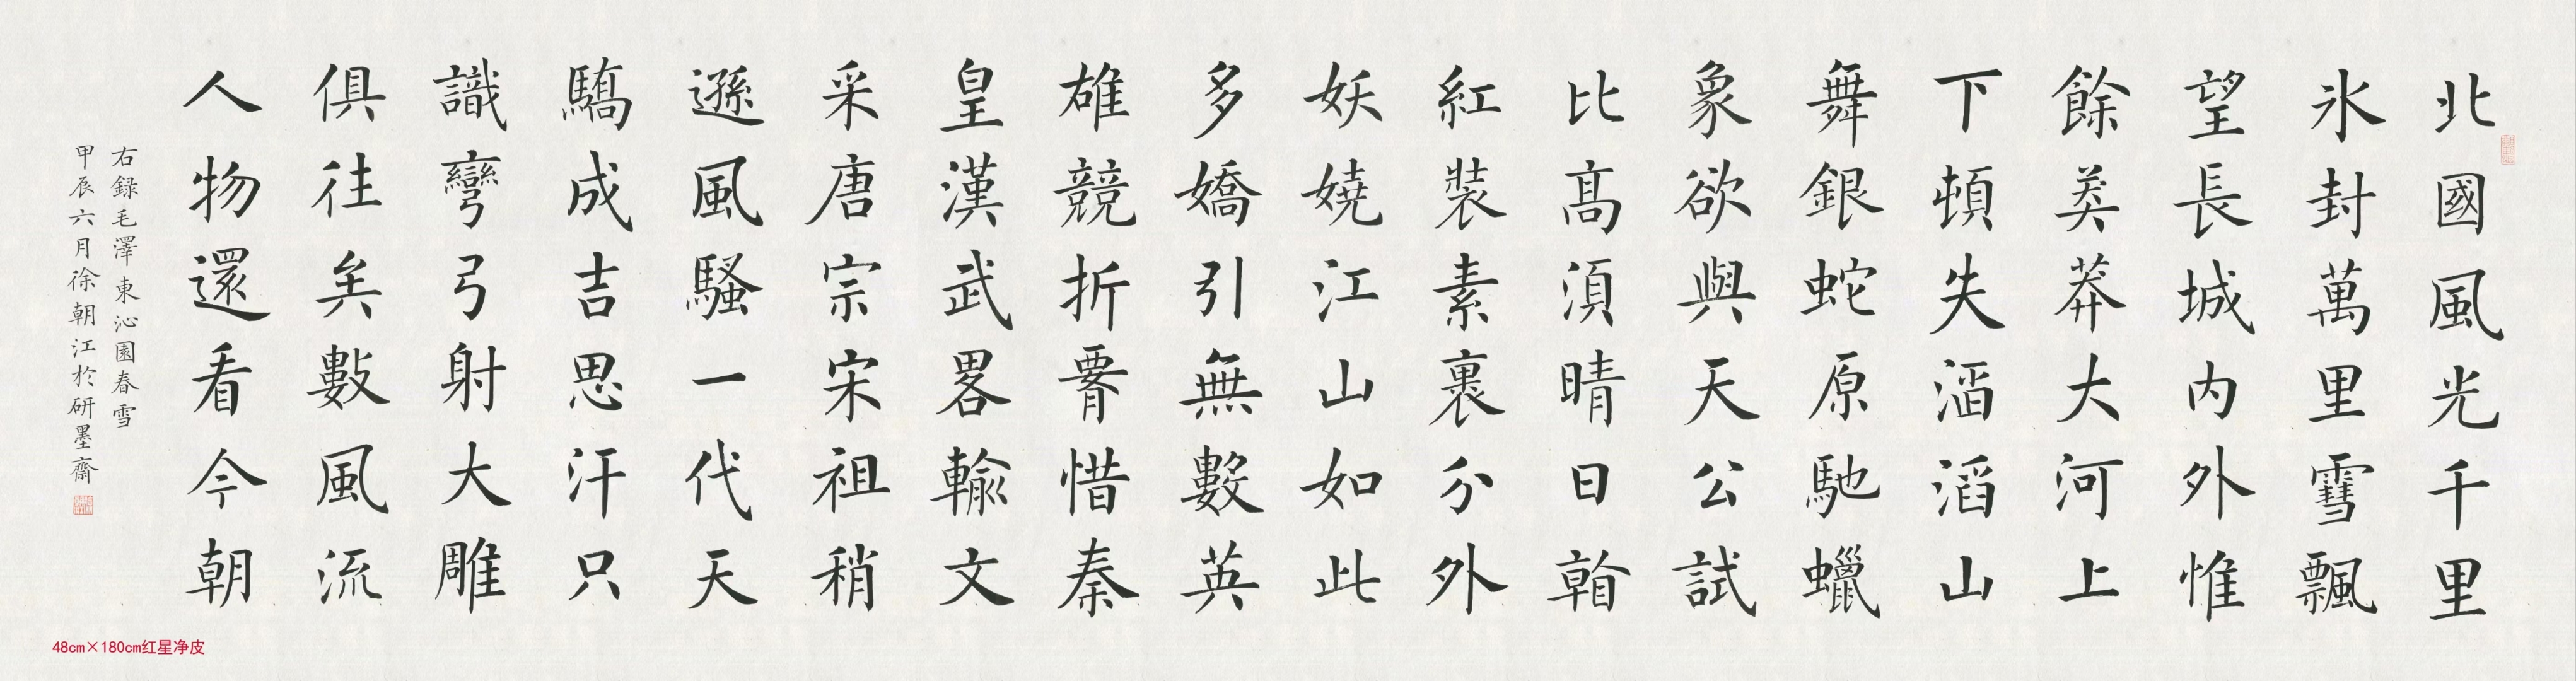 北國風光千里
氷封萬里雪飄
望長城内外惟
餘莽莽大河上
下頓失滔滔山
舞銀蛇原馳蠟
象欲與天公試
比髙湏晴日看
紅裝素裹分外
妖嬈江山如此
多嬌引無數英
雄競折腰惜秦
皇漢武畧輸文
采唐宗宋祖稍
遜風騷一代天
驕成吉思汗只
識彎弓射大雕
俱往矣數風流
人物還看今朝
右録毛澤東沁園春雪
甲辰六月徐朝江於研墨齋
48cm×180cm红星净皮